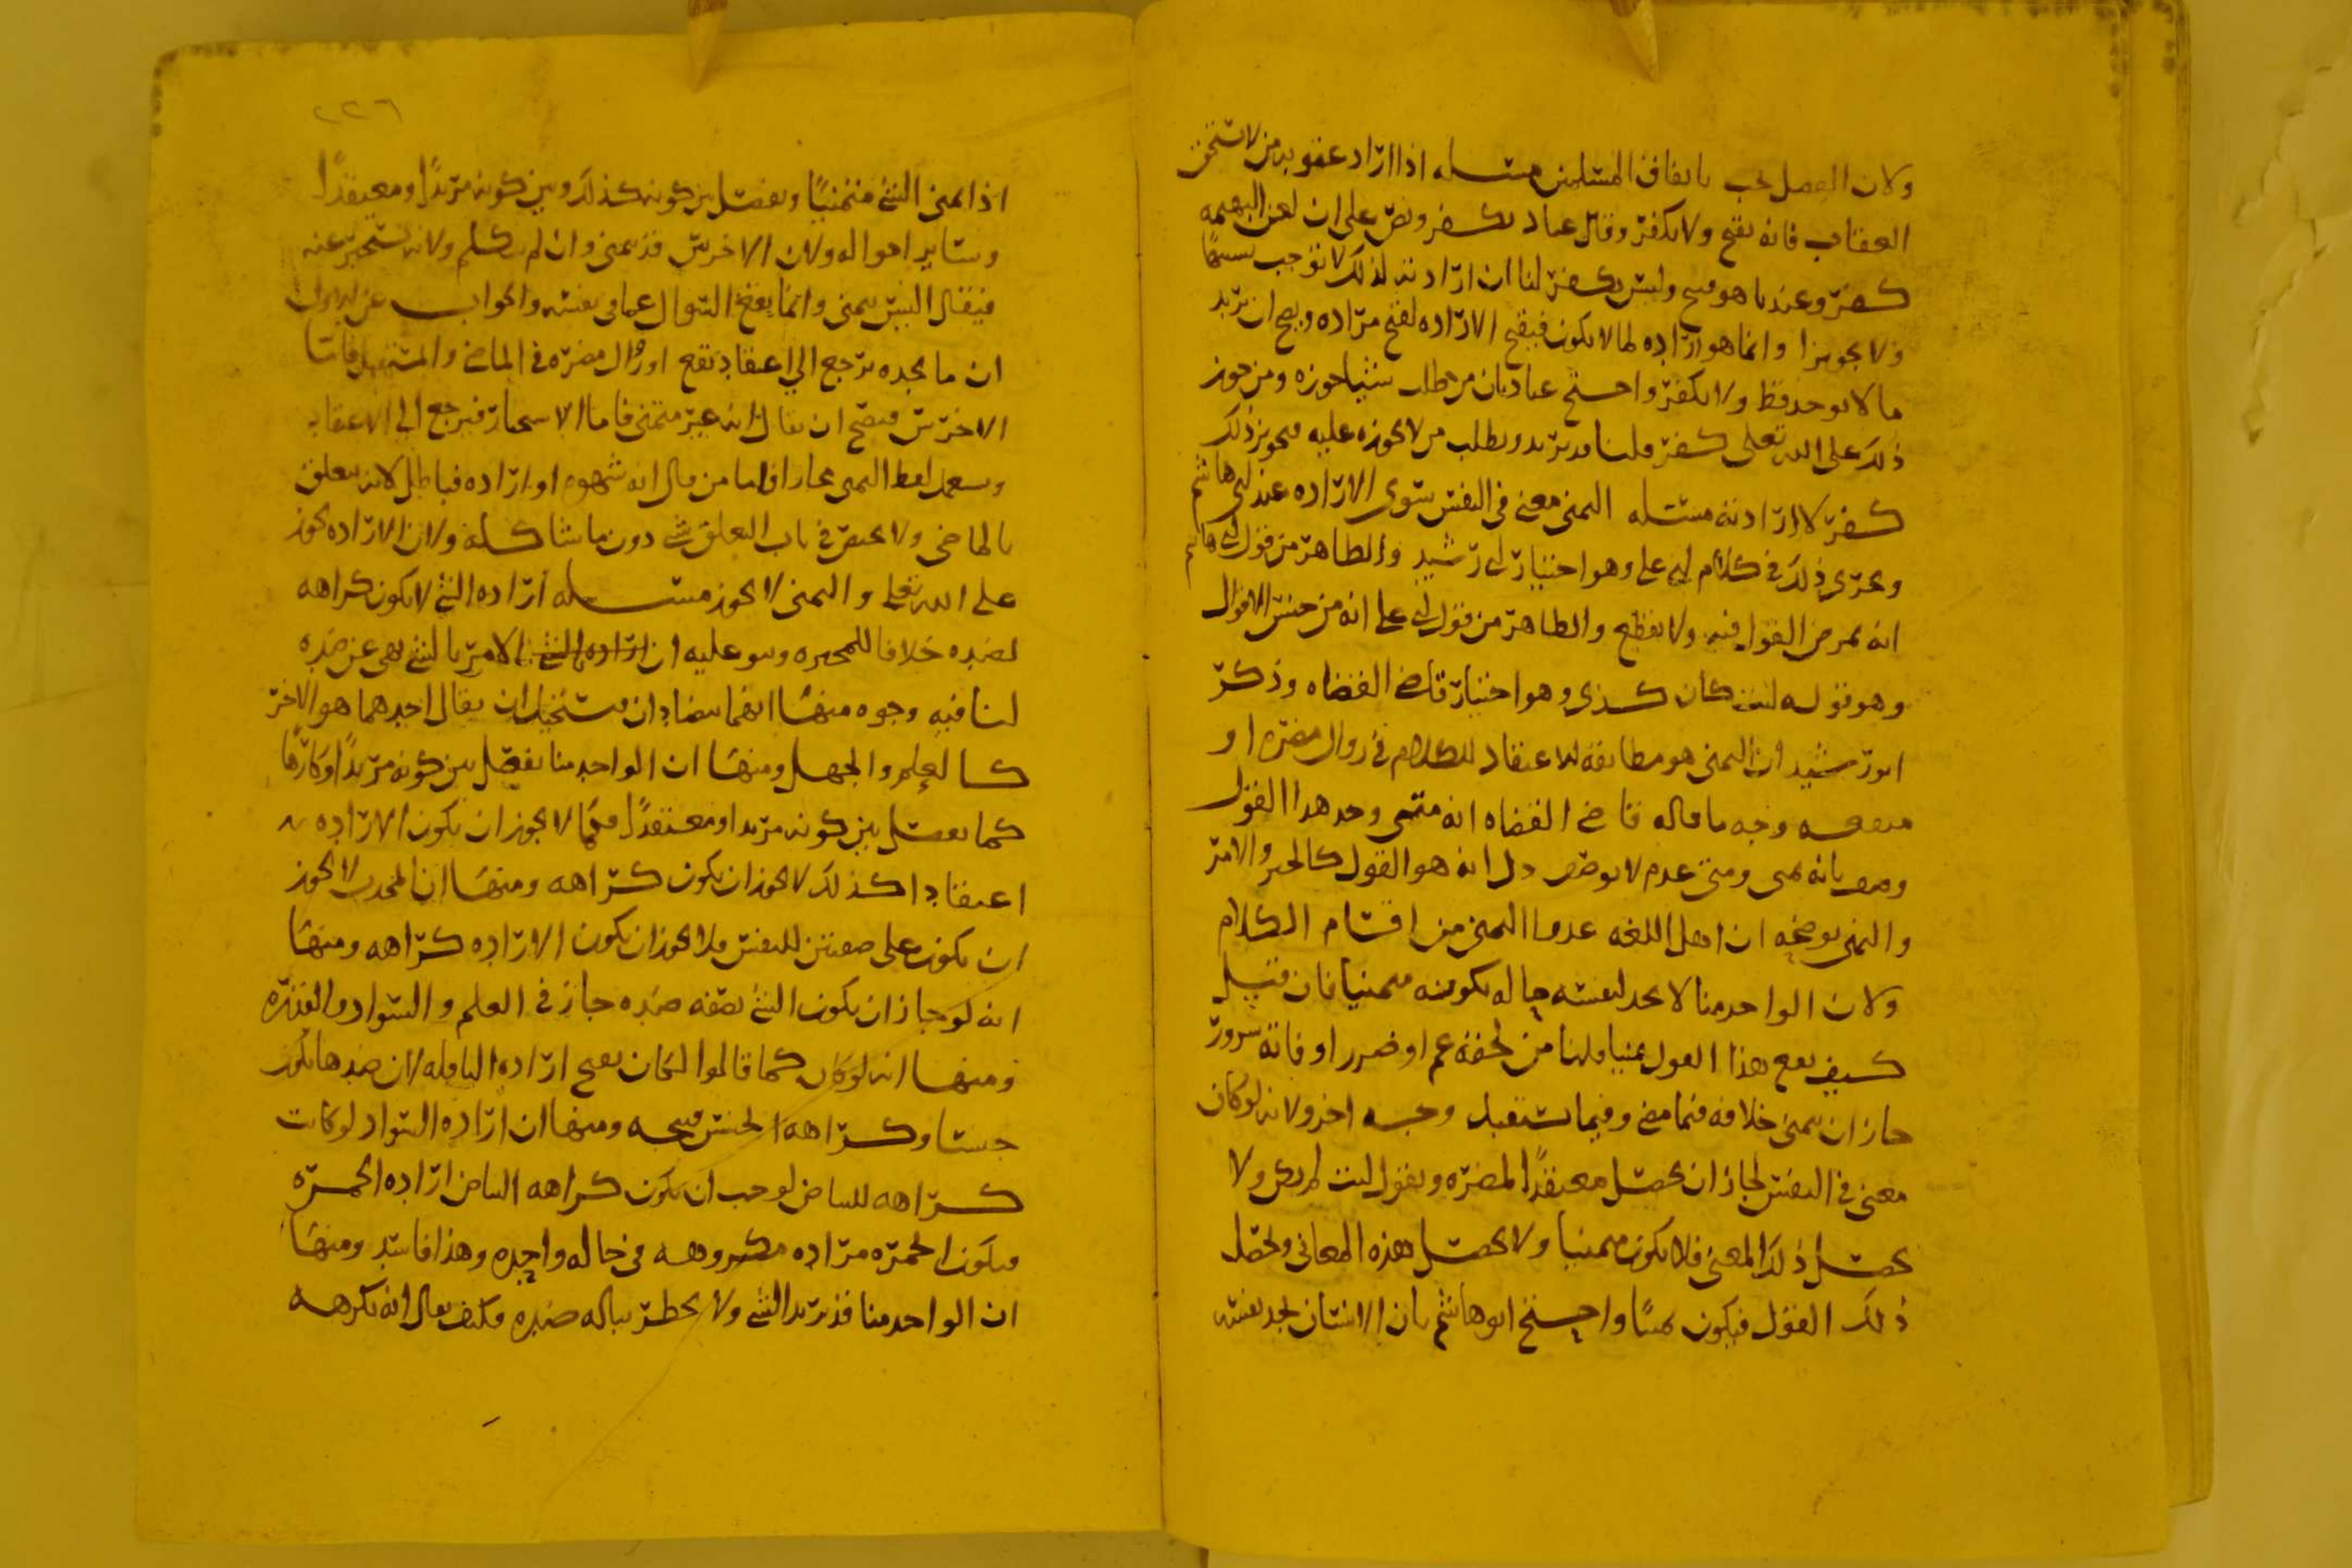 ولان الفعل يجب باتفاق المسلمين مسئله اذا اراد عقوبه من لا يستحق
العقاب فانه يقبح ولا يكفر وقال عباد يكفر ونص على ان لعن البهيمه
كفر وعندنا هو قبيح وليس بكفر لنا ان ارادته لذلك لا توجب
ولا تجويرا وانما هو اراده لما لا يكون فيقبح الاراده لقبح مراده ويصح ان يريد
ما لا يوجد قط ولا يكفر واحتج عباد بان من طلب شيئا جوزه ومن جوز
ذلك على الله تعلى كفر قلنا قد يريد ويطلب من لا يجوزه عليه فتجويز ذلك
كفر لا ارادته مسئله التمنى معنى في النفس سوى الاراده عند ابي هاشم
ويجرى ذلك في كلام ابي على وهو اختيار ابي رشيد والظاهر من قول ابي هاشم
انه يمرض القول فيه ولا يقطع والظاهر من قول ابي على انه من جنس الاقوال
وهو قوله ليت كان كذى وهو اختيار قاضى القضاه وذكر
ابو رشيد ان التمنى هو مطابقه الاعتقاد للكلام في زوال مضره او
منفعه وجه ما قاله قاضى القضاه انه متى وجد هذا القول
وصف بانه تمنى ومتى عدم لا يوصف دل انه هو القول كالخبر والامر
والنهى يوضحه ان اهل اللغه عدوا التمنى من اقسام الكلام
ولان الواحد منا لا يجد لنفسه حاله بكونه متمنيا فان قيل
كيف يقع هذا القول تمنيا قلنا من لحقه غم او ضرر او فاته سرور
جاز ان يتمنى خلافه فيما مضى وفيما يستقبل وجه اخر ولانه لو كان
معنى في النفس لجاز ان يحصل معتقدا لمضره ويقول ليت لم يكن ولا
يحصل ذلك المعنى فلا يكون متمنيا ولا يحصل هذه المعانى ويحصل
ذلك القول فيكون تمنيا واحتج ابو هاشم بان الانسان يجد نفسه
٢٢٦
اذا تمنى الشئ متمنيا ويفصل بين كونه كذلك وبين كونه مريدا ومعتقدا
وسائر احواله ولان الاخرس قد يتمنى وان لم يتكلم ولانه يستخبر عنه
فيقال اليس يتمنى وانما يقع السوال عما في نفسه والجواب عن الاول
ان ما يجده يرجع الي اعتقاد نفع او زوال مضره في الماضى والمستقبل فاما
الاخرس فيصح ان يقال انه غير متمنى فاما الاستخبار فيرجع الي الاعتقاد
ويستعمل لفظ التمنى مجازا فاما من قال انه شهوه او اراده فباطل لانه يتعلق
بالماضى ولا يختص في باب التعلق شئ دون ما شاكله ولان الاراده تجوز
على الله تعلى والتمنى لا يجوز مسئله اراده الشئ لا يكون كراهه
لضده خلافا للمجبره وبنو عليه ان اراده الشئ الامر بالشئ نهى عن ضده
لنا فيه وجوه منها انهما متضادان فيستحيل ان يقال احدهما هو الاخر
كالعلم والجهل ومنها ان الواحد منا يفصل بين كونه مريدا وكارها
كما يفصل بين كونه مريدا ومعتقدا فكما لا يجوز ان تكون الاراده
اعتقادا كذلك لا يجوز ان يكون كراهه ومنها ان المحدث لا يجوز
ان يكون على صفتين للنفس فلا يجوز ان تكون الاراده كراهه ومنها
انه لو جاز ان يكون الشئ بصفه ضده جاز في العلم والسواد والقدره
ومنها انه لو كان كما قالوا لكان يقبح اراده النافله لان ضدها يكون
حسنا وكراهه الحسن قبيحه ومنها ان اراده السواد لو كانت
كراهه للبياض لوجب ان يكون كراهه البياض اراده الحمره
فيكون الحمره مراده مكروهه في حاله واحده وهذا فاسد ومنها
ان الواحد منا قد يريد الشئ ولا يخطر بباله ضده فكيف يقال انه يكرهه